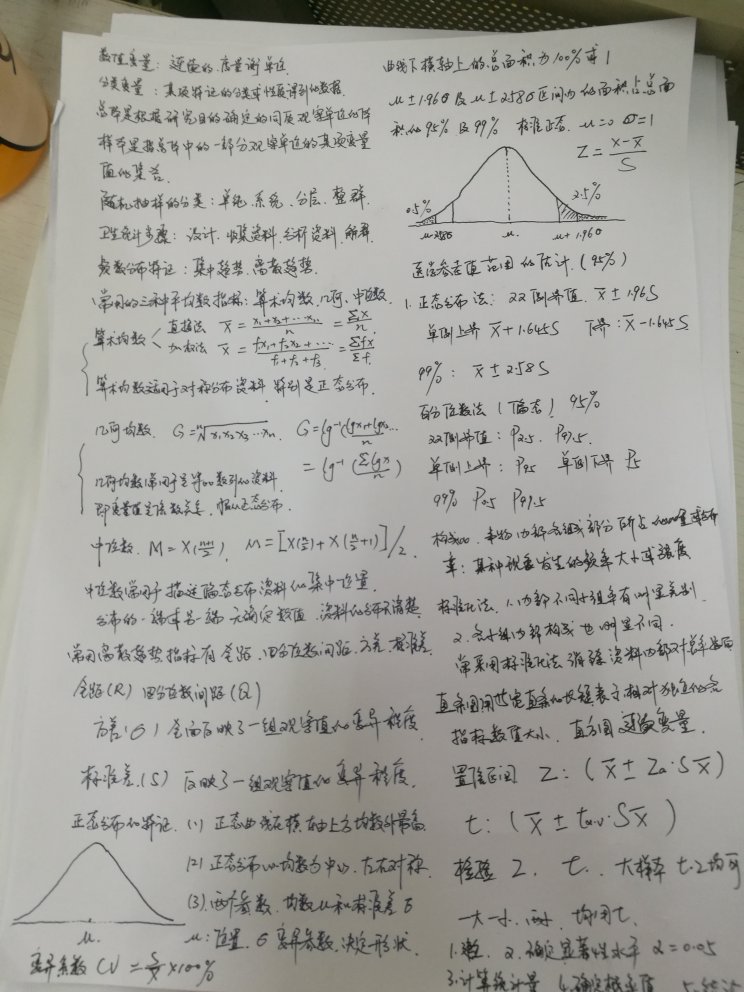 数值变量：连续的，度量衡单位
分类变量：某项特征的分类或性质得到的数据
总体是根据研究目的确定的同质观察单位的全体
样本是指总体中的一部分观察单位的某项变量
值的集合.
随机抽样的分类：单纯、系统、分层、整群.
卫生统计步骤：设计、收集资料、分析资料、解释
频数分布特征：集中趋势、离散趋势.
常用的三种平均数指标：算术均数、几何、中位数
算术均数 直接法 X̄ = x₁+x₂+…xₙ / n = Σx / n
加权法 X̄ = fx₁+f₂x₂+… / f₁+f₂+f₃ = Σfx / Σf
算术均数适用于对称分布资料 特别是正态分布.
几何均数. G=ⁿ√x₁x₂x₃…xₙ. G=lg⁻¹(lgx₁+lgx₂… / n
= lg⁻¹(Σlgx / n)
几何均数常用于呈等比数列的资料
即变量值呈倍数关系，
中位数. M=X(n+1/2), M=[X(n/2)+X(n/2+1)]/2
中位数常用于描述偏态分布资料的集中位置
分布的一端或另一端无确定数值 资料的分布不清楚
常用离散趋势指标有 全距、四分位数间距、方差、标准差
全距(R) 四分位数间距(Q)
方差(σ) 全面反映了一组观察值的变异程度
标准差(S) 反映了一组观察值的变异程度.
正态分布的特征. (1) 正态曲线在横轴上方均数处最高
(2) 正态分布以均数为中心，左右对称.
(3).两个参数，均数μ和标准差σ
μ:位置. σ 变异参数,决定形状.
μ.
变异系数 CV = S/X̄ ×100%
曲线下横轴上的总面积为100%或1
μ±1.96σ及μ±2.58σ区间内的面积占总面
积的95%及99% 标准正态. μ=0 σ=1
Z = x-x̄ / S
0.5% 2.5%
μ μ+1.96σ
医学参考值范围的估计.(95%)
1.正态分布法：双侧界值. x̄±1.96S
单侧上界 x̄+1.645S 下界:x̄-1.645S
99%: x̄±2.58S
百分位数法(偏态) 95%
双侧界值：P2.5. P97.5.
单侧上界：P95 单侧下界 P5
99% P0.5 P99.5
事物内部各组成部分所占的
率：某种现象发生的频率大小或强度
标准化法. 1.内部不同小组率有明显差别.
2.各小组内部构成也明显不同.
常采用标准化法消除资料内部对总率
直条图用等宽直条的长短表示相对独立的
指标数值大小. 直方图 连续变量.
置信区间 Z: (x̄±Zα·Sx̄)
t: (x̄±tα.ν·Sx̄)
检验 Z, t. 大样本 t.Z均可
一大一小、两小，均用t.
2.确定显著性水平 α=0.05
3.计算统计量 4.确定概率值